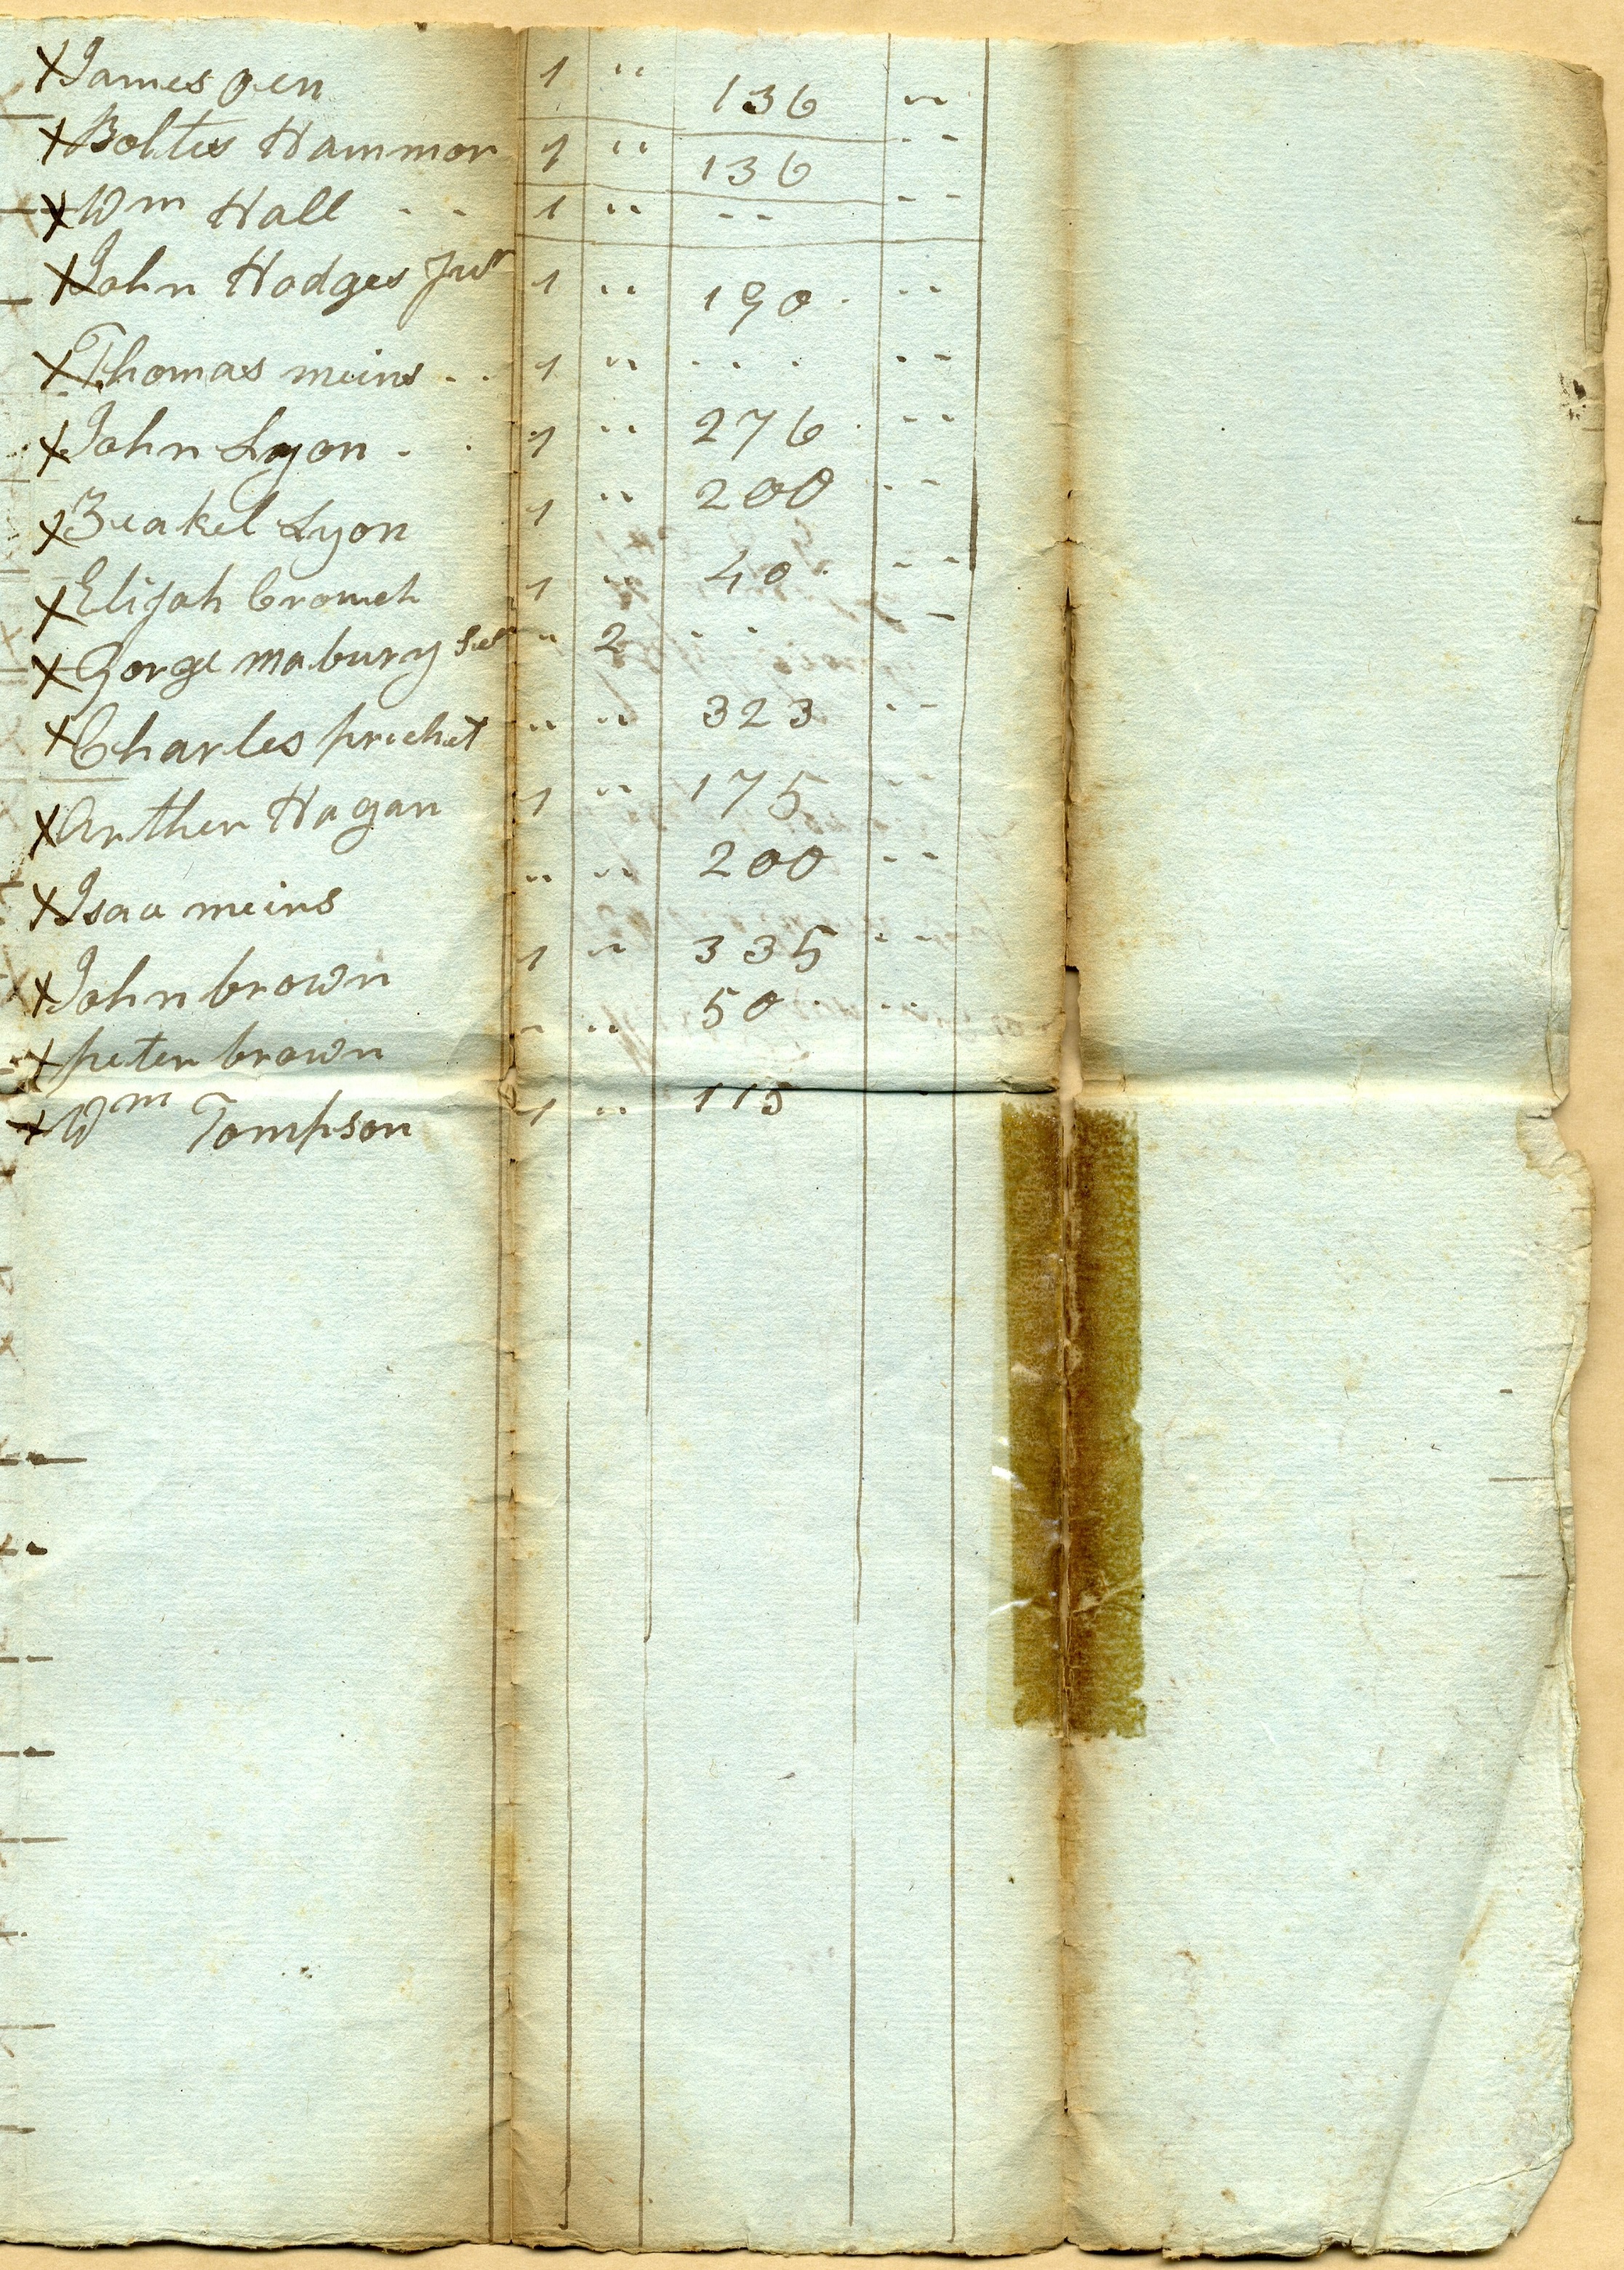 X James pen 1 " 136 "
X Boltis Hammor 1 " 136 - -
X Wm Hall - - 1 " - - - -
X John Hodges Jur 1 " 190 "
X Thomas meins - - 1 " - - - - -
X John Lyon - - 1 " 276 - -
X Zeakel Lyon 1 " 200 - -
X Elijah Crouch 1 " 40 - -
X Gorge mabury Ser " 2 - - - -
X Charles prichet " " 323 - -
X Arther Hagan 1 " 175 - -
X Isaa meins " " 200 - -
X John brown 1 " 335 - -
X peter brown " " 50
X Wm Tompson 1 " 115